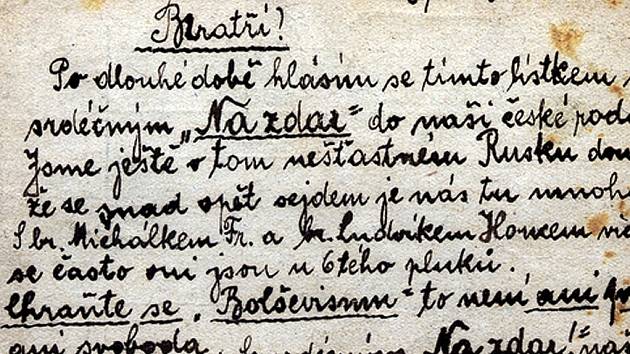 Bratři!
Po dlouhé době hlásím se tímto lístkem
srdéčným „Na zdar" do naši české
Jsme ještě v tom nešťastném Rusku
že se snad opět sejdem je nás tu mnoho
S br. Michálkem Fr. a br. Ludvíkem Honcem
se často oni jsou u 6tého pluku.
Chraňte se „Bolševismu" to není ani
ani svoboda Na zdar!"